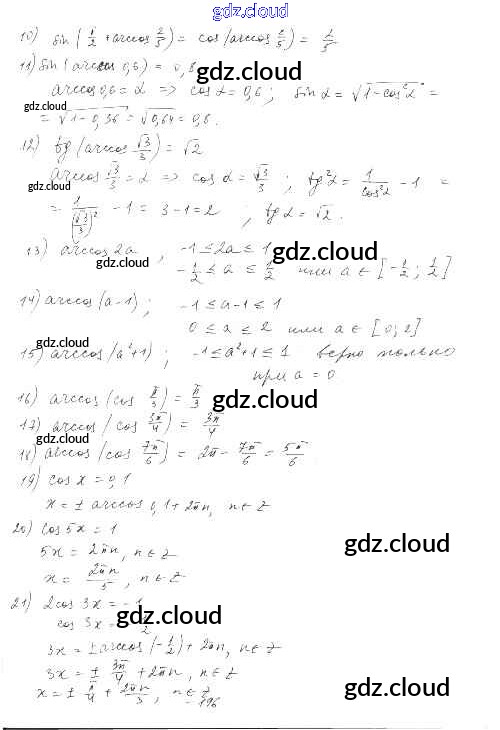 gdz.cloud
10) sin(1/2 + arccos 2/5) = cos(arccos 2/5) = 2/5
11) sin(arccos 0,6) = 0,8 gdz.cloud
arccos 0,6 = α => cos α = 0,6; sin α = √(1-cos²α) =
gdz.cloud gdz.cloud
= √(1-0,36) = √0,64 = 0,8.
12) tg(arccos √3/3) = √2
arccos √3/3 = α => cos α = √3/3; tg²α = 1/cos²α - 1 =
gdz.cloud
= 1/(√3/3)² - 1 = 3-1 = 2; tg α = √2.
13) arccos 2a, -1 ≤ 2a ≤ 1
gdz.cloud gdz.cloud
-1/2 ≤ a ≤ 1/2 или a ∈ [-1/2; 1/2]
14) arccos(a-1); -1 ≤ a-1 ≤ 1
0 ≤ a ≤ 2 или a ∈ [0; 2]
gdz.cloud
15) arccos(a²+1); -1 ≤ a²+1 ≤ 1 верно только
при a = 0
16) arccos(cos π/3) = π/3
gdz.cloud
17) arccos(cos 3π/4) = 3π/4
gdz.cloud
18) arccos(cos 7π/6) = 2π - 7π/6 = 5π/6.
19) cos x = 0,1
x = ± arccos 0,1 + 2πn, n ∈ Z
20) cos 5x = 1
5x = 2πn, n ∈ Z
gdz.cloud
x = 2πn/5, n ∈ Z
21) 2cos 3x = -1
gdz.cloud gdz.cloud
cos 3x = 2
3x = ± arccos(-1/2) + 2πn, n ∈ Z
3x = ± 3π/4 + 2πn, n ∈ Z
x = ± π/4 + 2πn/3, n ∈ Z
-196